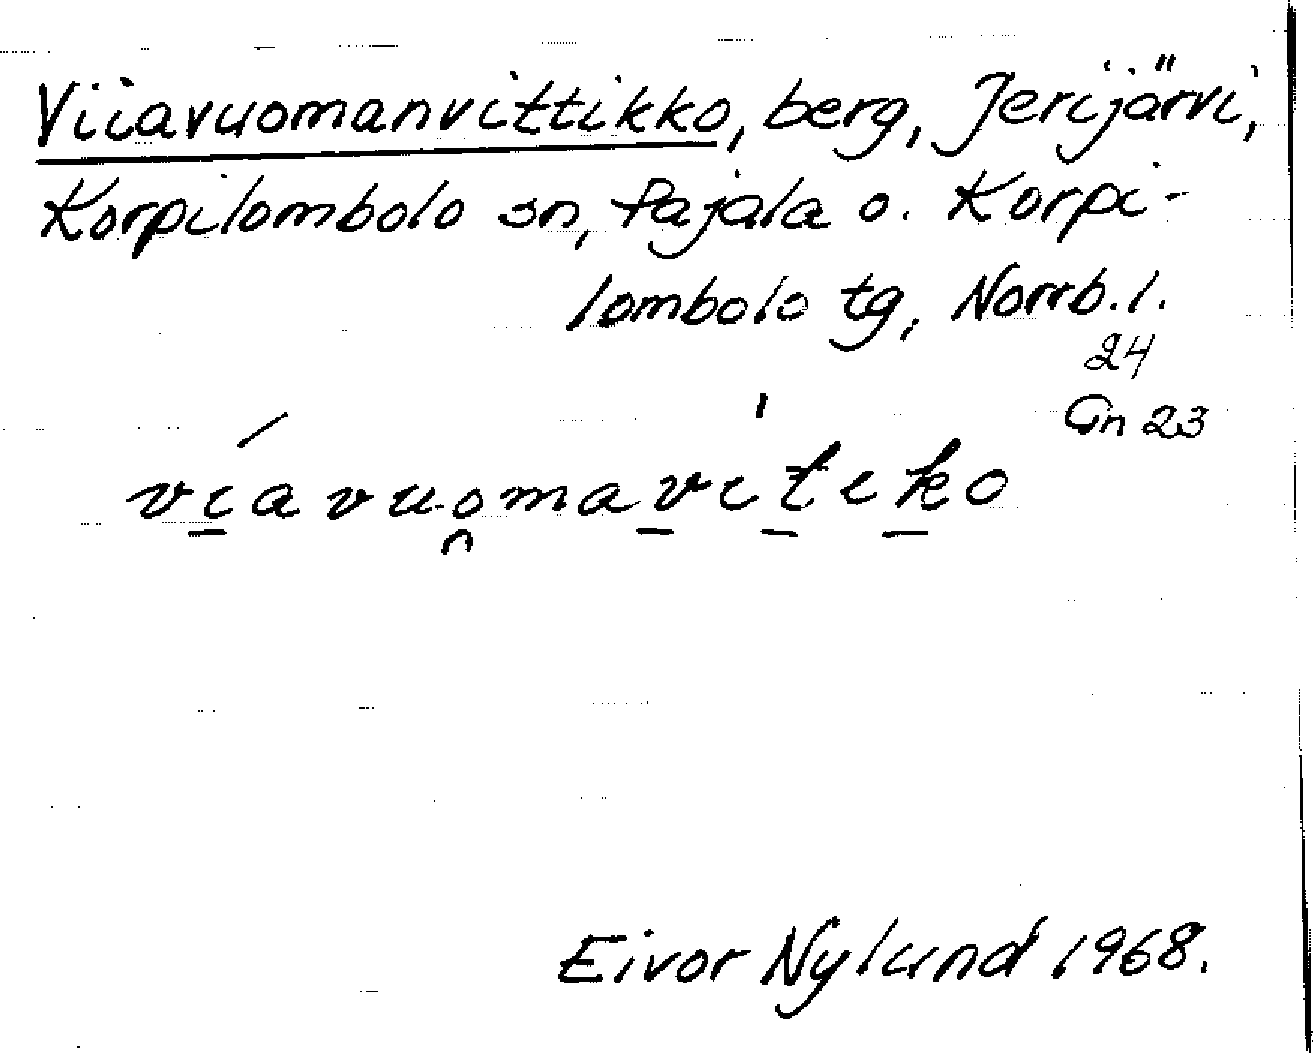 Viiavuomanvittikko, berg, Jerijärvi,
Korpilombolo sn, Pajala o. Korpi-
lombolo tg, Norrb. l.
24
Gn 23
viavuomaviteko
Eivor Nylund 1968.